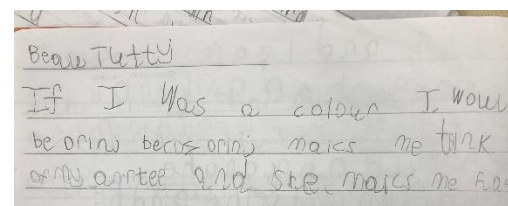 Beau Tutty
If I was a colour I woul
be orinj becus orinj maics me tink
of my anntee and she maics me ha